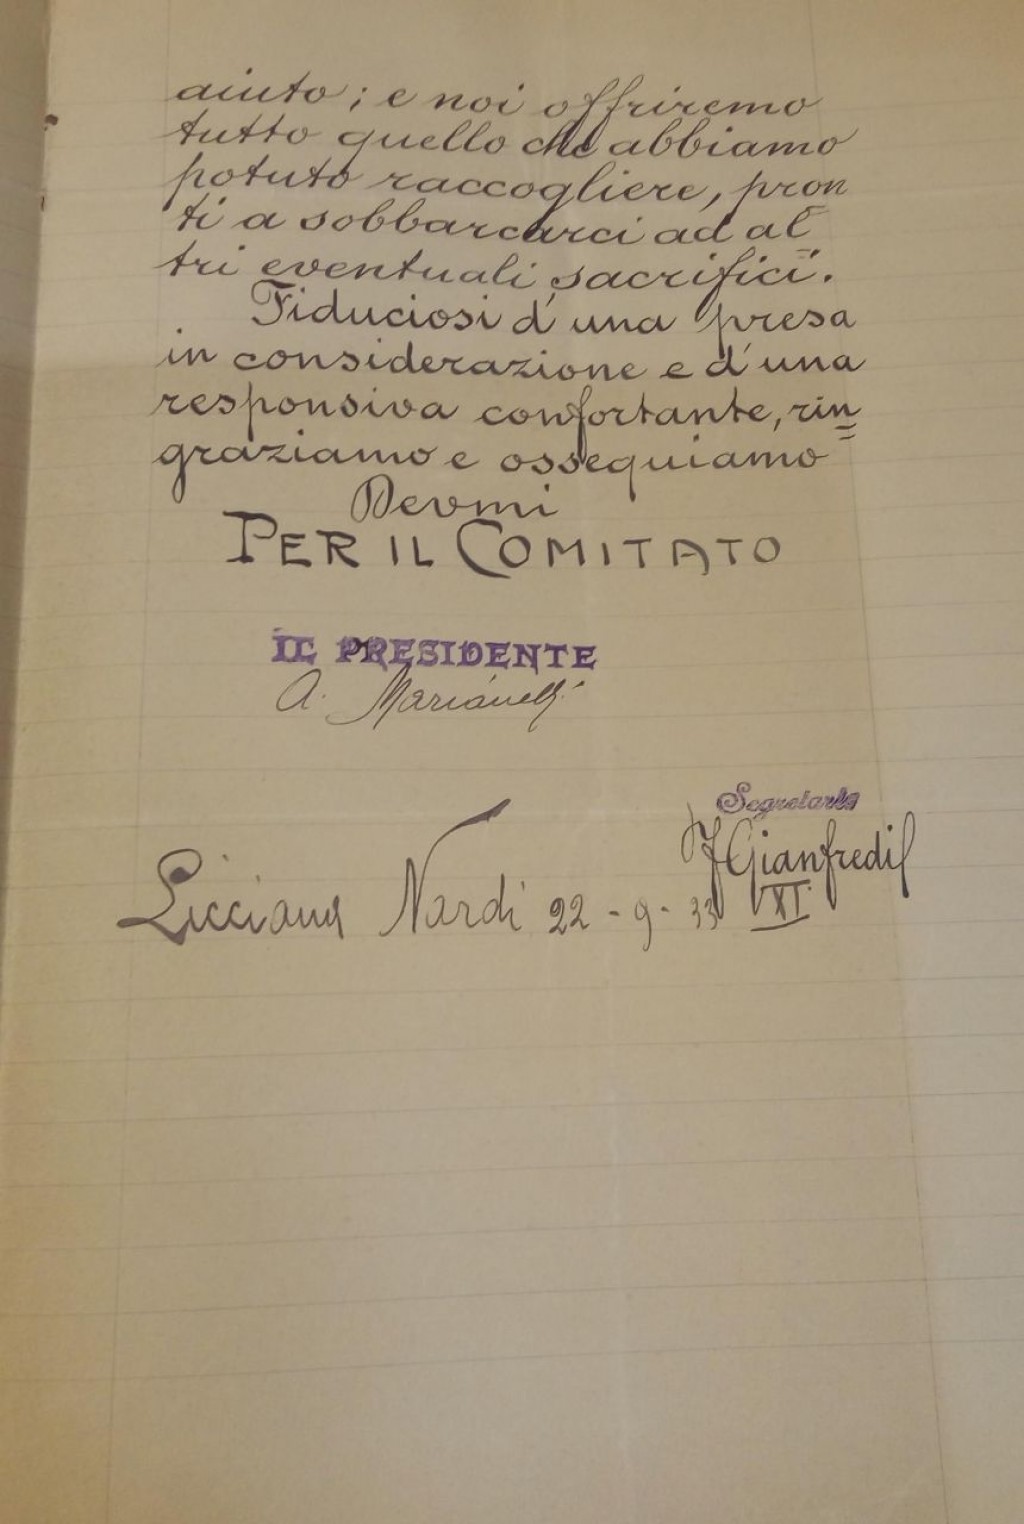 aiuto; e noi offriremo
tutto quello che abbiamo
potuto raccogliere, pron
ti a sobbarcarci ad al=
tri eventuali sacrifici.
Fiduciosi d'una presa
in considerazione e d'una
responsiva confortante, rin=
graziamo e ossequiamo
Devmi
PER IL COMITATO
IL PRESIDENTE
A. Marianelli
Segretario
Gianfredi
Licciana Nardi 22-9-33 XI